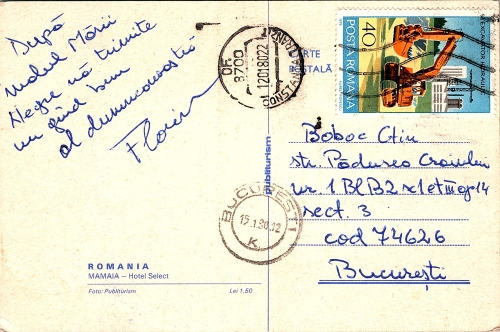 După
malul Mării
Negre vă trimite
un gînd bun
al dumneavoastră
Florin
CARTE
POSTALĂ
OF.
8700
12018022
CONSTANTA
POSTA ROMANA
40
EXCAVATOR HIDRAULIC
publiturism
Boboc Ctin
str. Pădurea Craiului
nr. 1 Bl B2 sc 1 et III ap 14
sect. 3
cod 74626
București
BUCURESTI
15.1.80.12
K
ROMANIA
MAMAIA – Hotel Select
Foto: Publiturism
Lei 1,50